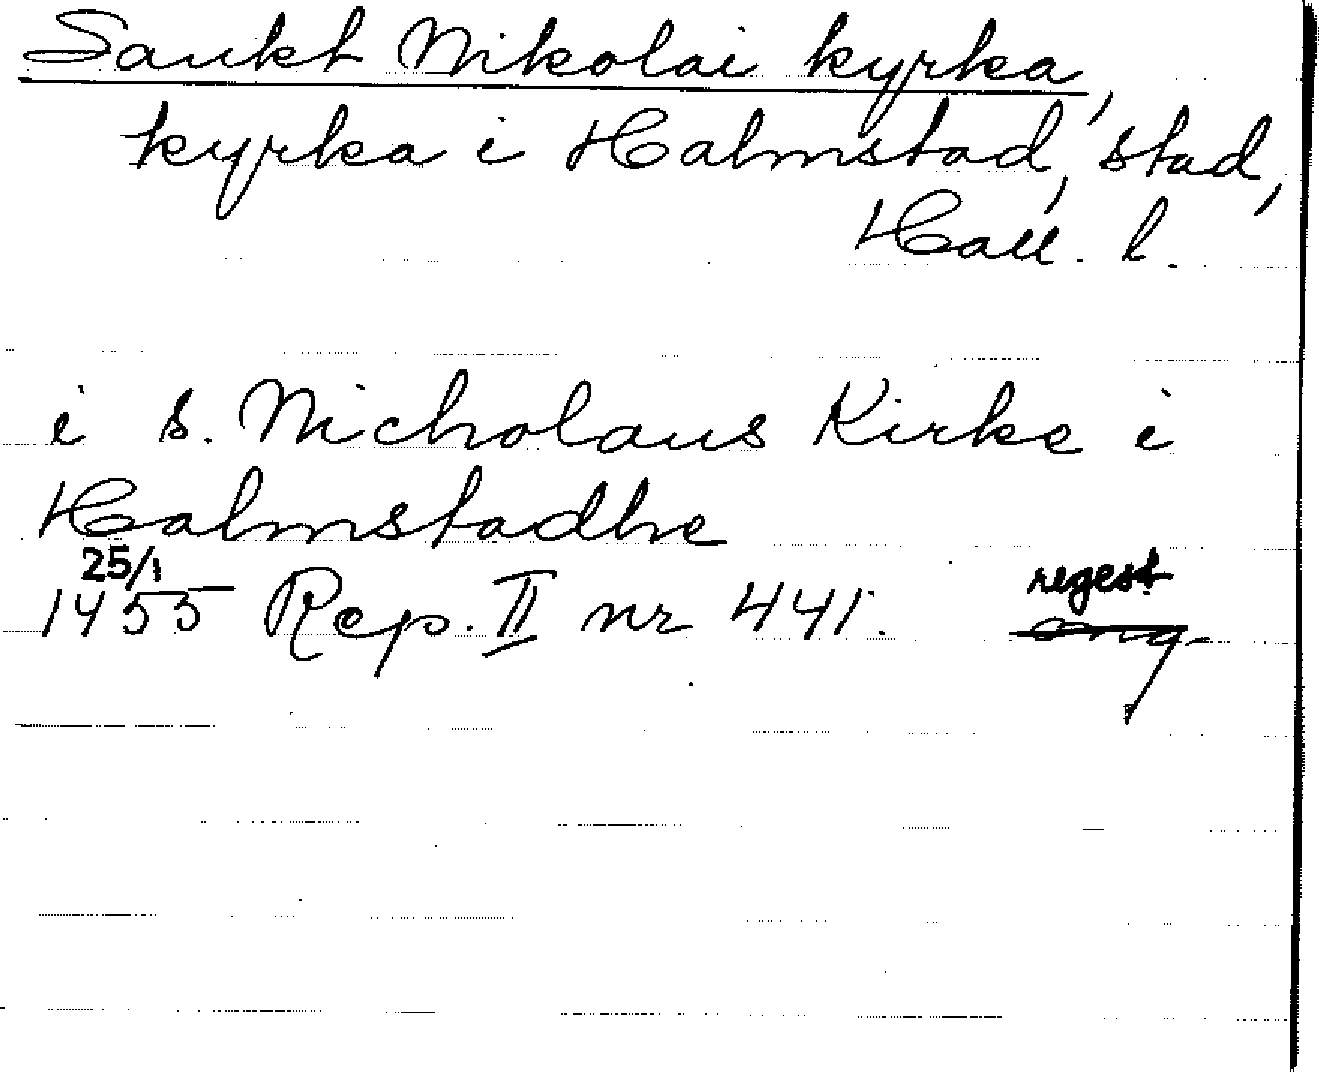 Sankt Nikolai kyrka,
kyrka i Halmstad, stad,
Hall. l.
i s. Nicholaus Kirke i
Halmstadhe
25/1
1455 Rep. II nr 441. regest